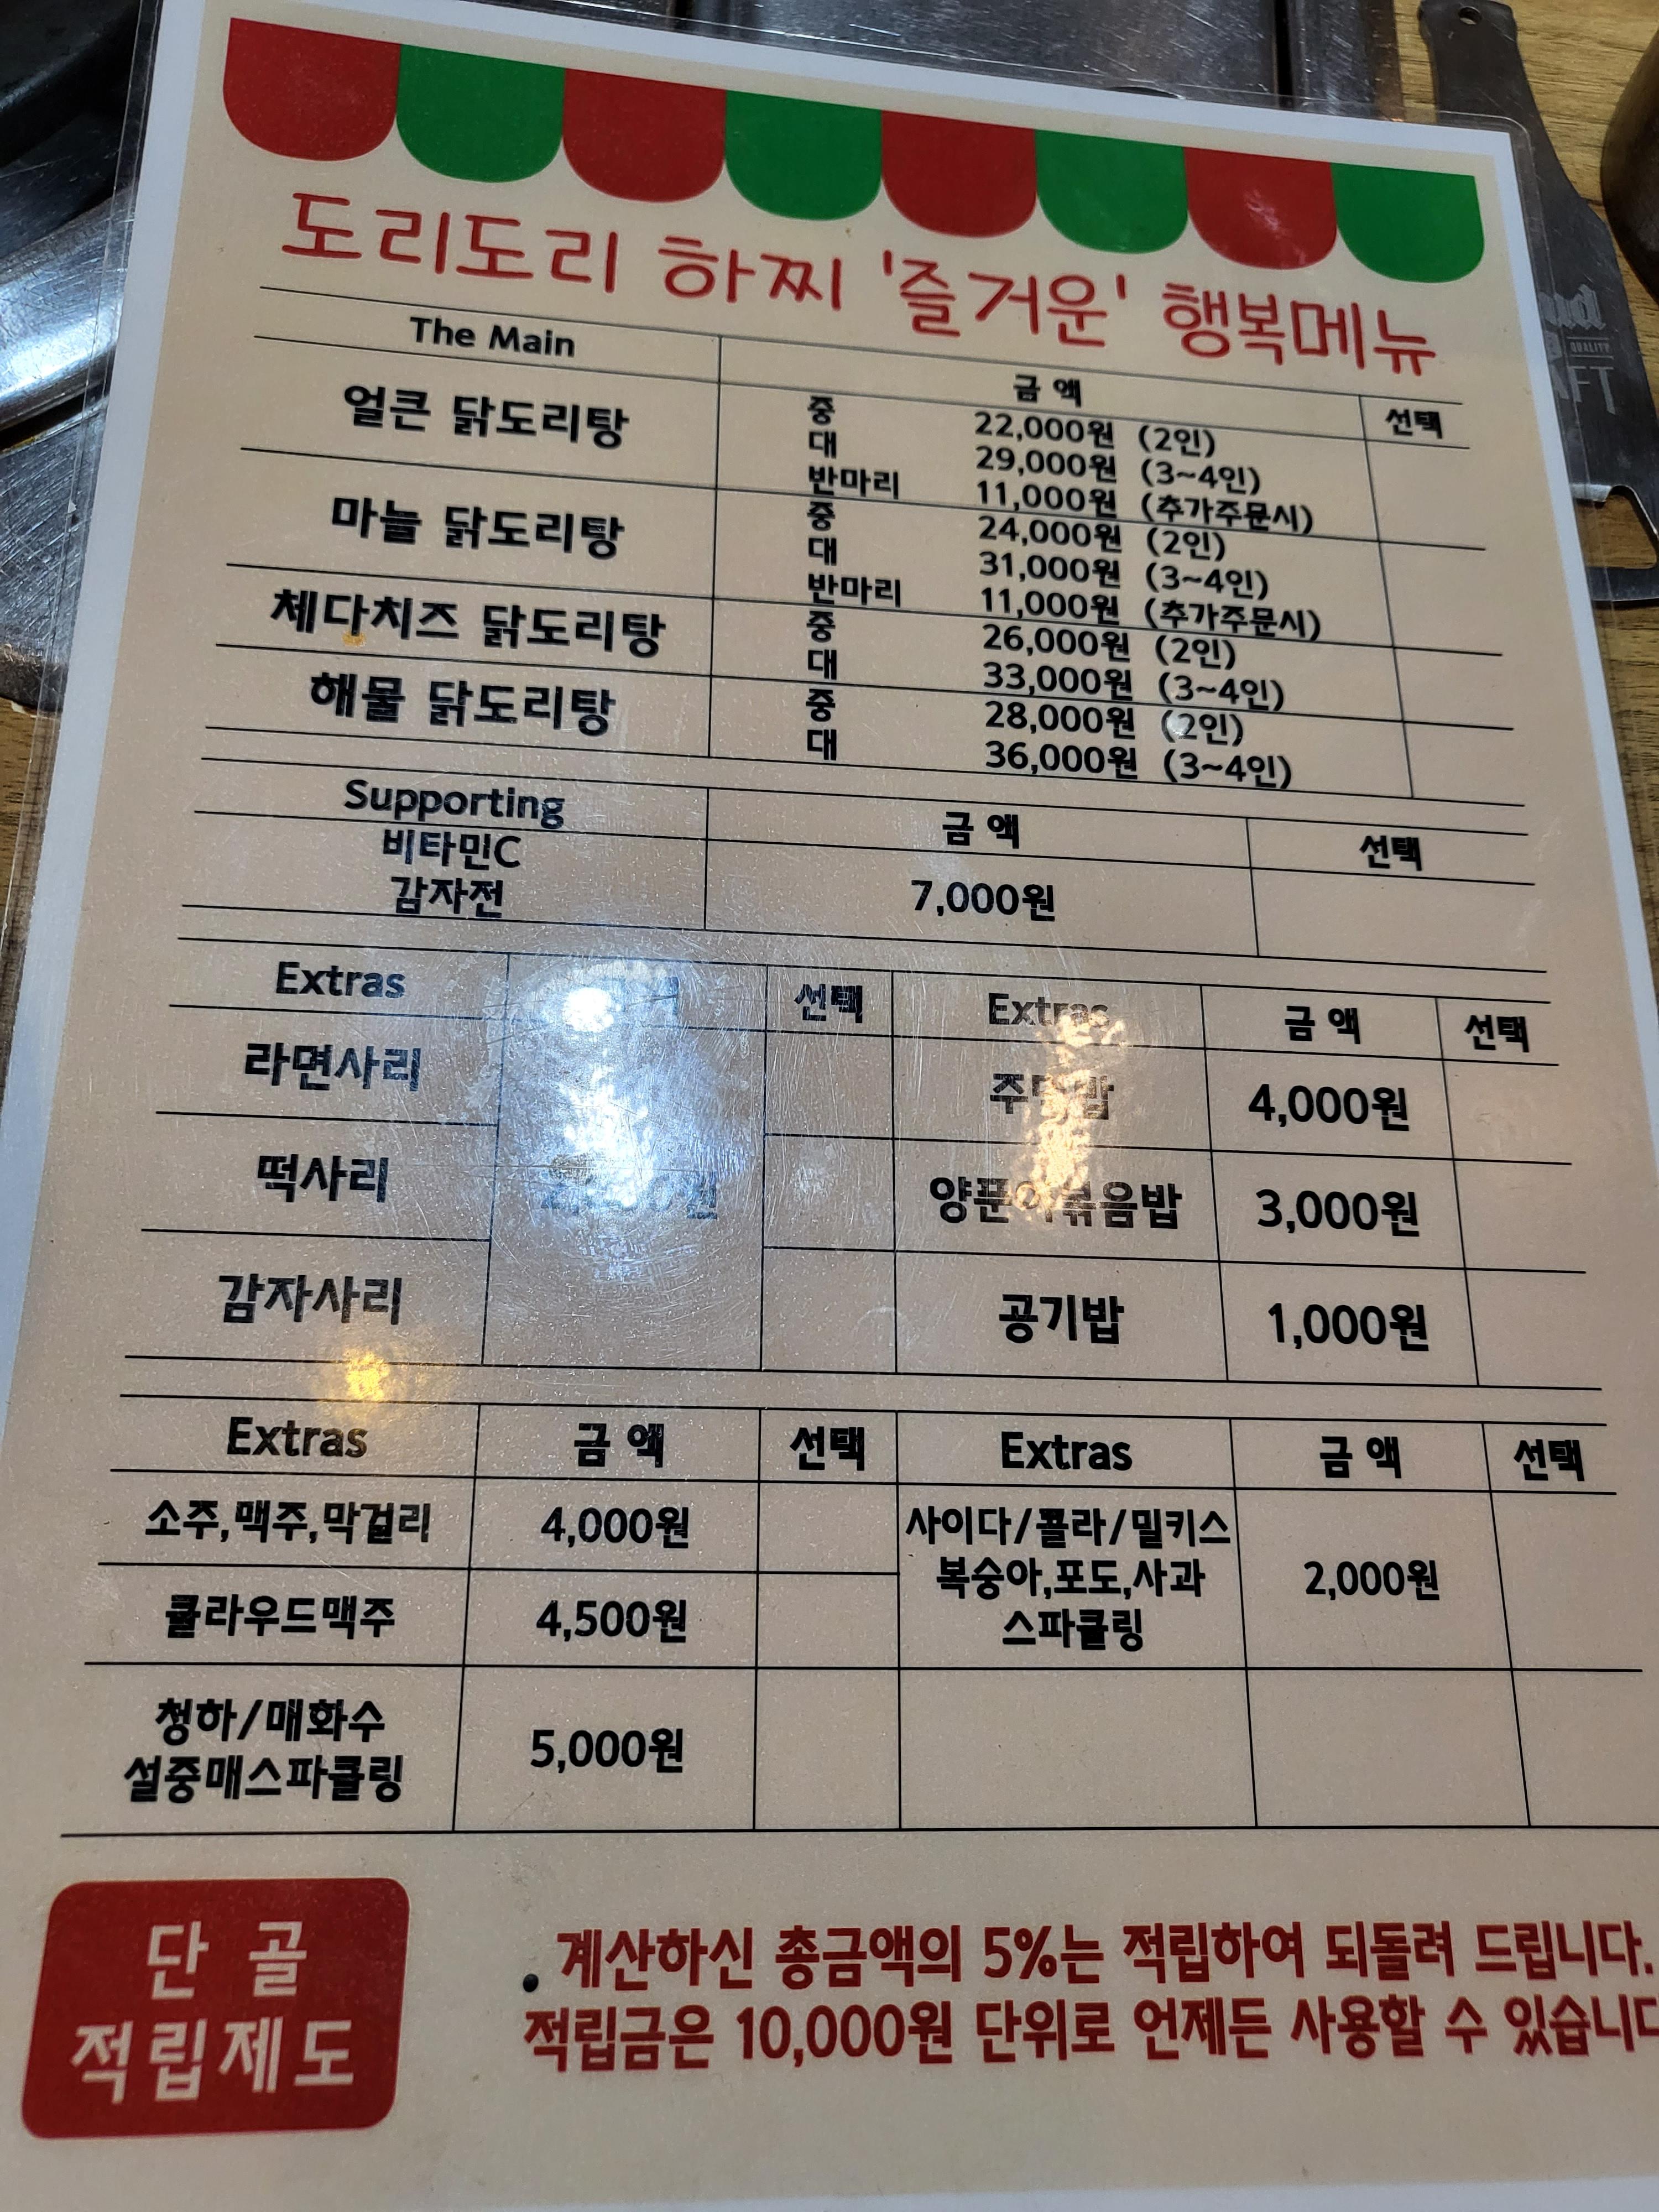 도리도리 하찌 '즐거운' 행복메뉴
The Main 금 액 선택
얼큰 닭도리탕
중 22,000원 (2인)
대 29,000원 (3~4인)
반마리 11,000원 (추가주문시)
마늘 닭도리탕
중 24,000원 (2인)
대 31,000원 (3~4인)
반마리 11,000원 (추가주문시)
체다치즈 닭도리탕
중 26,000원 (2인)
대 33,000원 (3~4인)
해물 닭도리탕
중 28,000원 (2인)
대 36,000원 (3~4인)
Supporting 금 액 선택
비타민C
감자전 7,000원
Extras 선택 Extras 금 액 선택
라면사리 4,000원
떡사리 3,000원
감자사리 공기밥 1,000원
Extras 금 액 선택 Extras 금 액 선택
소주,맥주,막걸리 4,000원
클라우드맥주 4,500원
청하/매화수
설중매스파클링 5,000원
사이다/콜라/밀키스
복숭아,포도,사과
스파클링 2,000원
단 골
적립제도
. 계산하신 총금액의 5%는 적립하여 되돌려 드립니다.
적립금은 10,000원 단위로 언제든 사용할 수